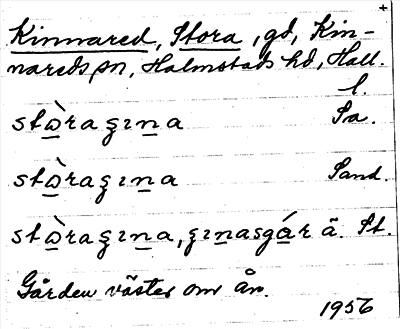 +
Kinnared, Stora, gd, Kin-
nareds sn, Halmstads hd, Hall.
l.
stὼ̲raʂın̲a Sa.
stὼ̲raʂın̲a Sand.
stὼ̲raʂın̲a, ʂın̲asgá̲r ä. St.
Gården väster om ån.
1956